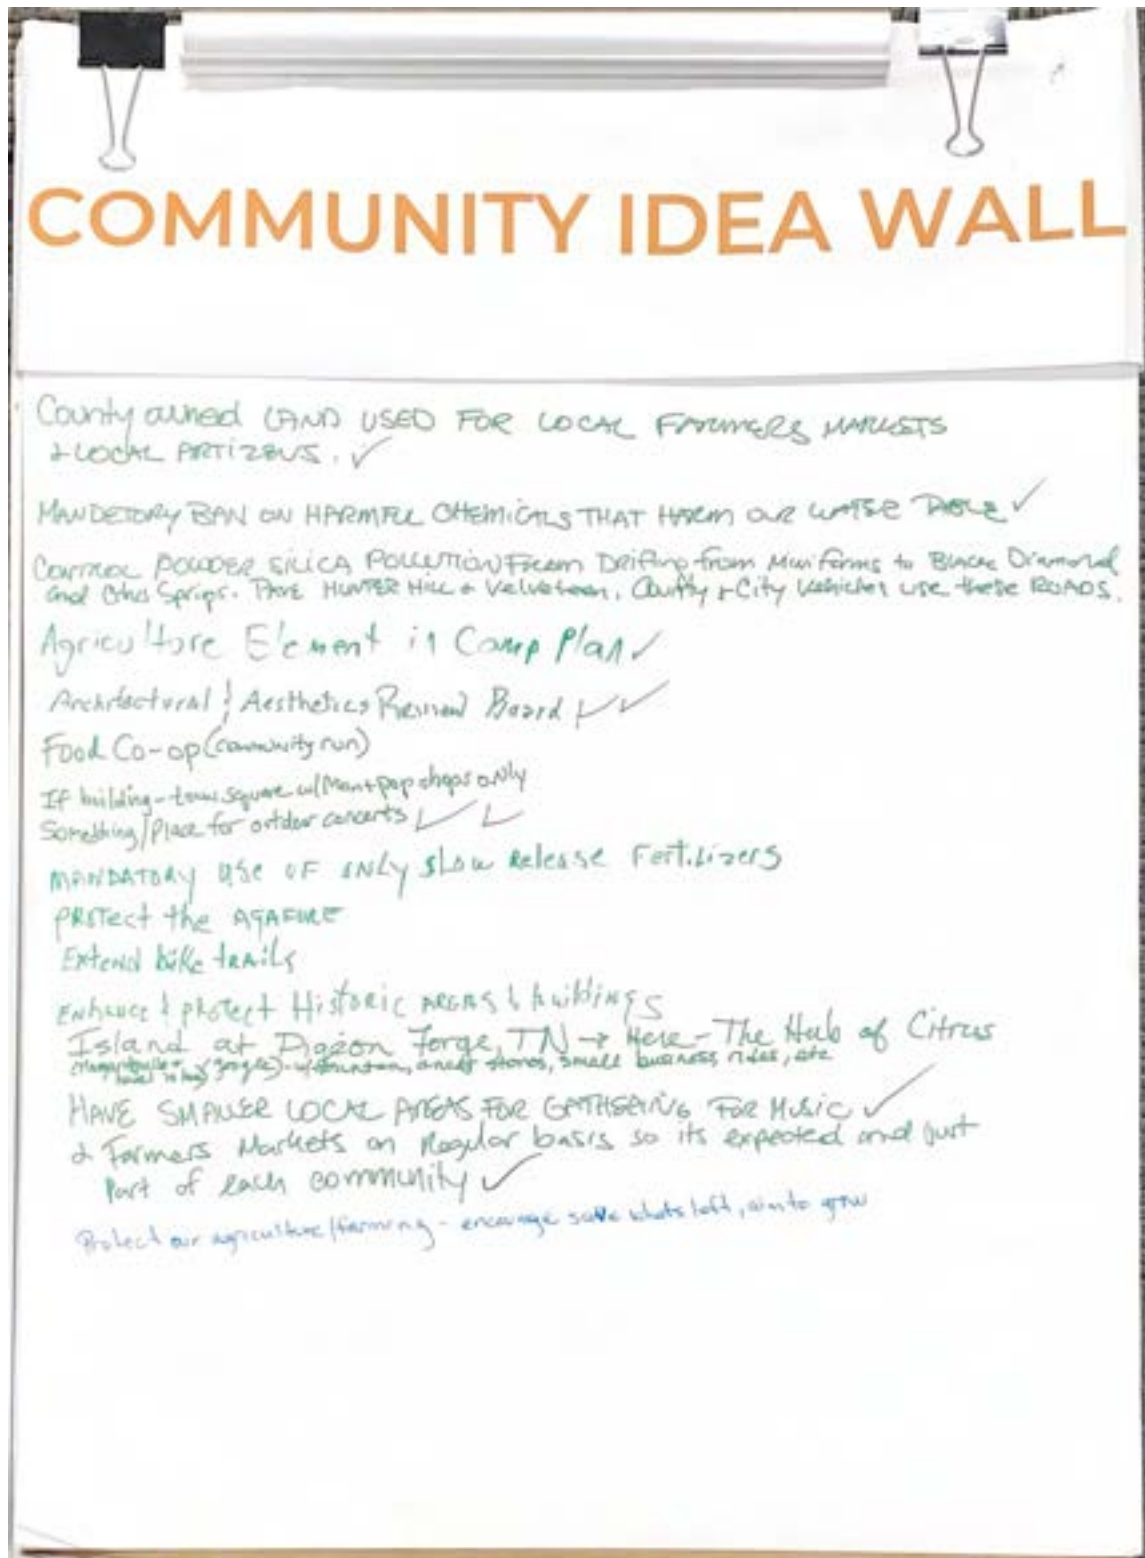 COMMUNITY IDEA WALL
County owned LAND USED FOR LOCAL FARMERS MARKETS
& LOCAL ARTIZENS. ✓
MANDETORY BAN ON HARMFUL CHEMICALS THAT HARM OUR WATER TABLE ✓
CONTROL POWDER SILICA POLLUTION From Drifting from Mini farms to Black Diamond
and Other Springs. PAVE HUNTER HILL & Velveteen, County & City Vehicles use these ROADS.
Agriculture Element in Comp Plan ✓
Architectural & Aesthetics Review Board ✓ ✓
Food Co-op (community run)
If building - town square w/ Mom + pop shops only
Something/Place for outdoor concerts ✓ ✓
MANDATORY USE OF ONLY slow Release Fertilizers
PROTECT the AQAFURE
Extend bike trails
ENHANCE & protect Historic AREAS & buildings
Island at Pigeon Forge, TN → Here - The Hub of Citrus
google) - w/ fountain, stores, small business, rides, etc
HAVE SMALLER LOCAL AREAS FOR GATHERING FOR MUSIC ✓
& Farmers Markets on Regular basis so its expected and just
Part of each community ✓
Protect our agriculture/farming - encourage save whats left, aim to grow